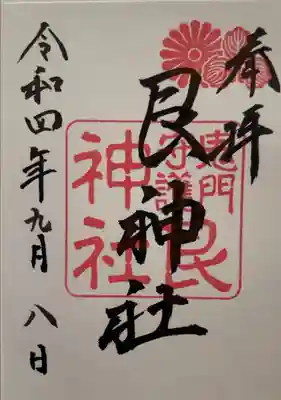 奉拝
艮神社
令和四年九月八日
鬼門
守護
艮
神社